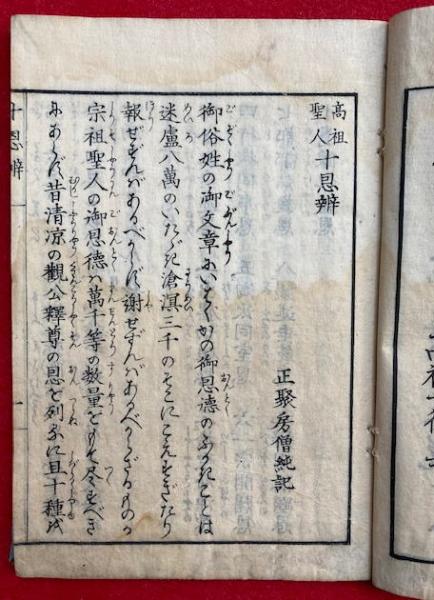 高祖聖人十恩辨
正聚房僧純記
御俗姓の御文章にいはくかの御恩德のふかきことは
迷盧八萬のいたゞき滄溟三千のそこにこえすぎたり
報ぜずんばあるべからず謝せずんばあるべからざるものか
宗祖聖人の御恩德は萬千等の数量をもて尽すべき
にあらず昔清涼の觀公釋尊の恩を列ぬに且十種を
十恩辨
一